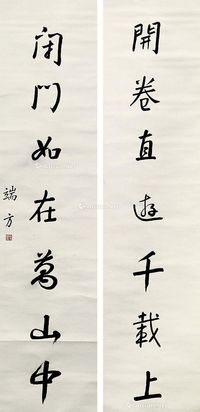 開卷直遊千載上
閉門如在萬山中
端方